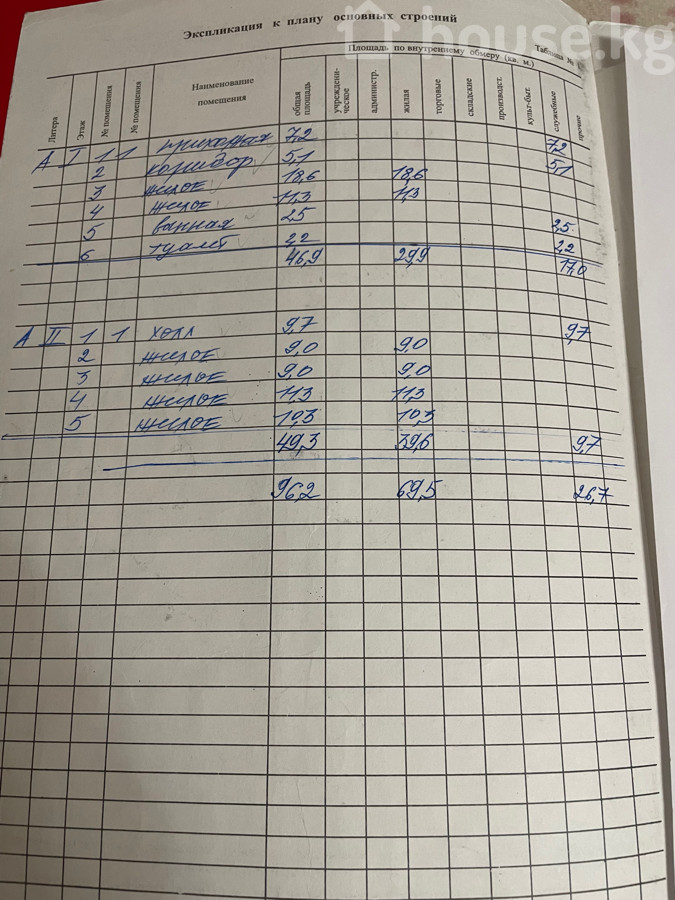 house.kg
Экспликация к плану основных строений
Таблица №
Площадь по внутреннему обмеру (кв. м.)
Литера
Этаж
№ помещения
№ помещения
Наименование помещения
общая площадь
учреждени-ческое
администр.
жилая
торговые
складские
производст.
культ-быт.
служебные
прочие
А I 1 1 прихожая 7,2 7,2
2 коридор 5,1 5,1
3 жилое 18,6 18,6
4 жилое 11,3 11,3
5 ванная 2,5 2,5
6 туалет 2,2 2,2
46,9 29,9 17,0
А II 1 1 холл 9,7 9,7
2 жилое 9,0 9,0
3 жилое 9,0 9,0
4 жилое 11,3 11,3
5 жилое 10,3 10,3
49,3 39,6 9,7
96,2 69,5 26,7